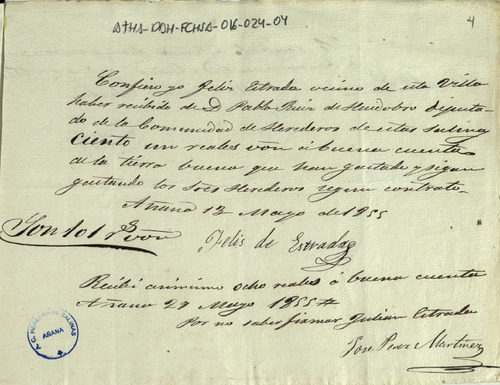 ATHA-DDH-FCHSA-016-024-04
4
Confieso yo Felix Estrada vecino de esta Villa
haber recibido de D. Pablo Ruiz de Huidobro Diputa
do de la Comunidad de Herederos de estas salinas
ciento un reales von á buena cuenta
de la tierra buena que han gastado y sigan
gastando los Sres Herederos segun contrato.
Añana 12 Mayo de 1855
Son 101 rs von
Felis de Estrada
Recibi asimismo ocho reales á buena cuenta
Añana 27 Mayo 1855
Por no saber firmar Julian Estrada
Jose Perez Martinez
AÑANA